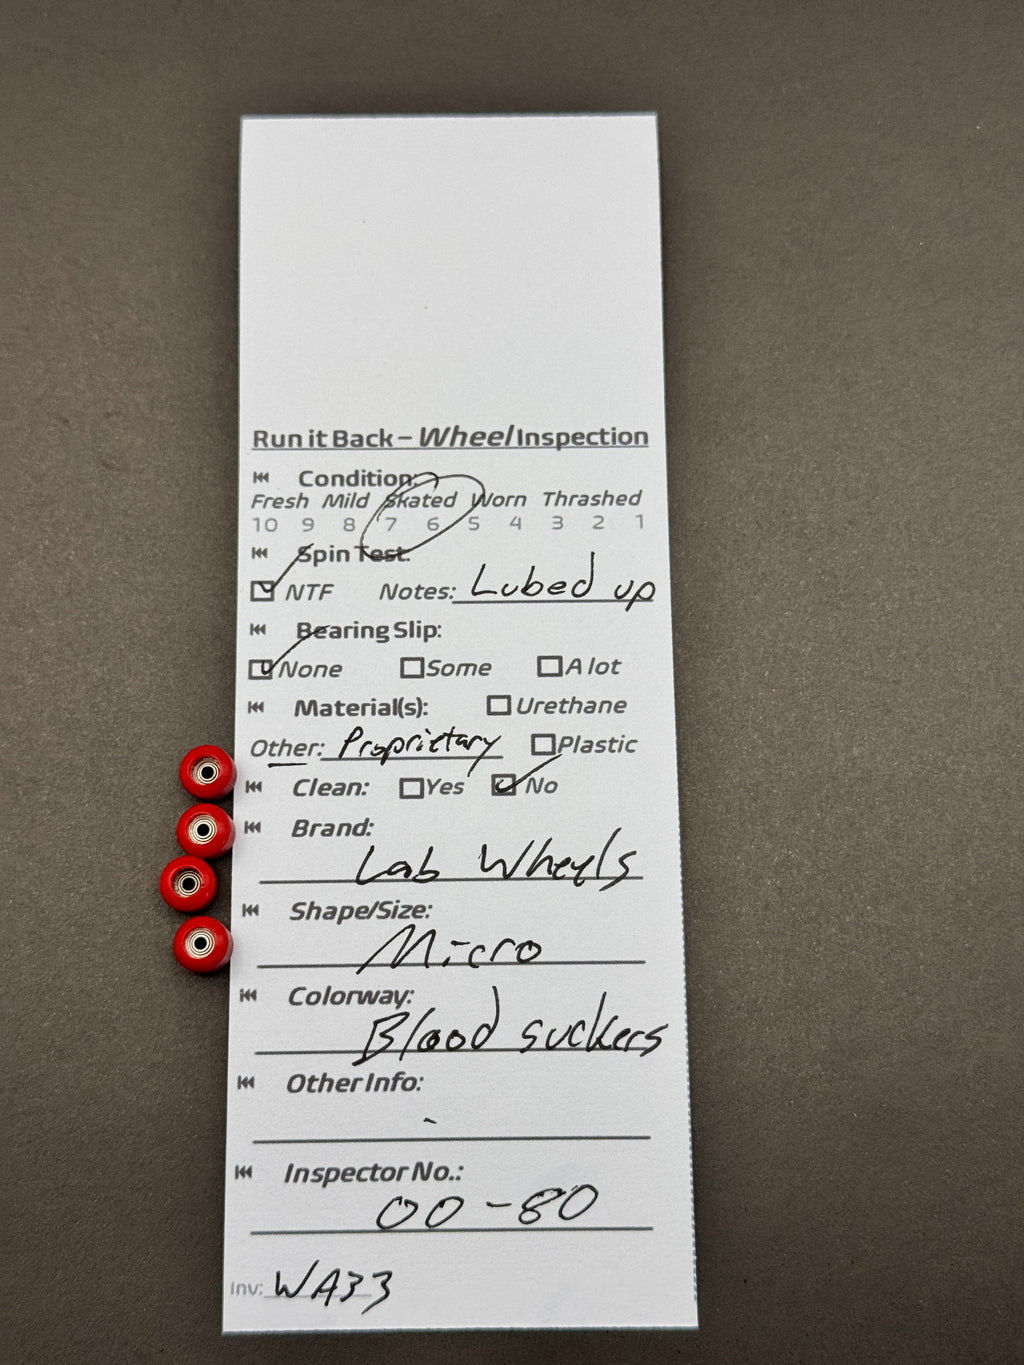 Run it Back – Wheel Inspection
Condition:
Fresh Mild Skated Worn Thrashed
10 9 8 7 6 5 4 3 2 1
Spin Test:
NTF Notes: Lubed up
Bearing Slip:
None Some A lot
Material(s): Urethane
Other: Proprietary Plastic
Clean: Yes No
Brand:
Lab Wheels
Shape/Size:
Micro
Colorway:
Blood suckers
Other Info:
-
Inspector No.:
00-80
Inv: WA33